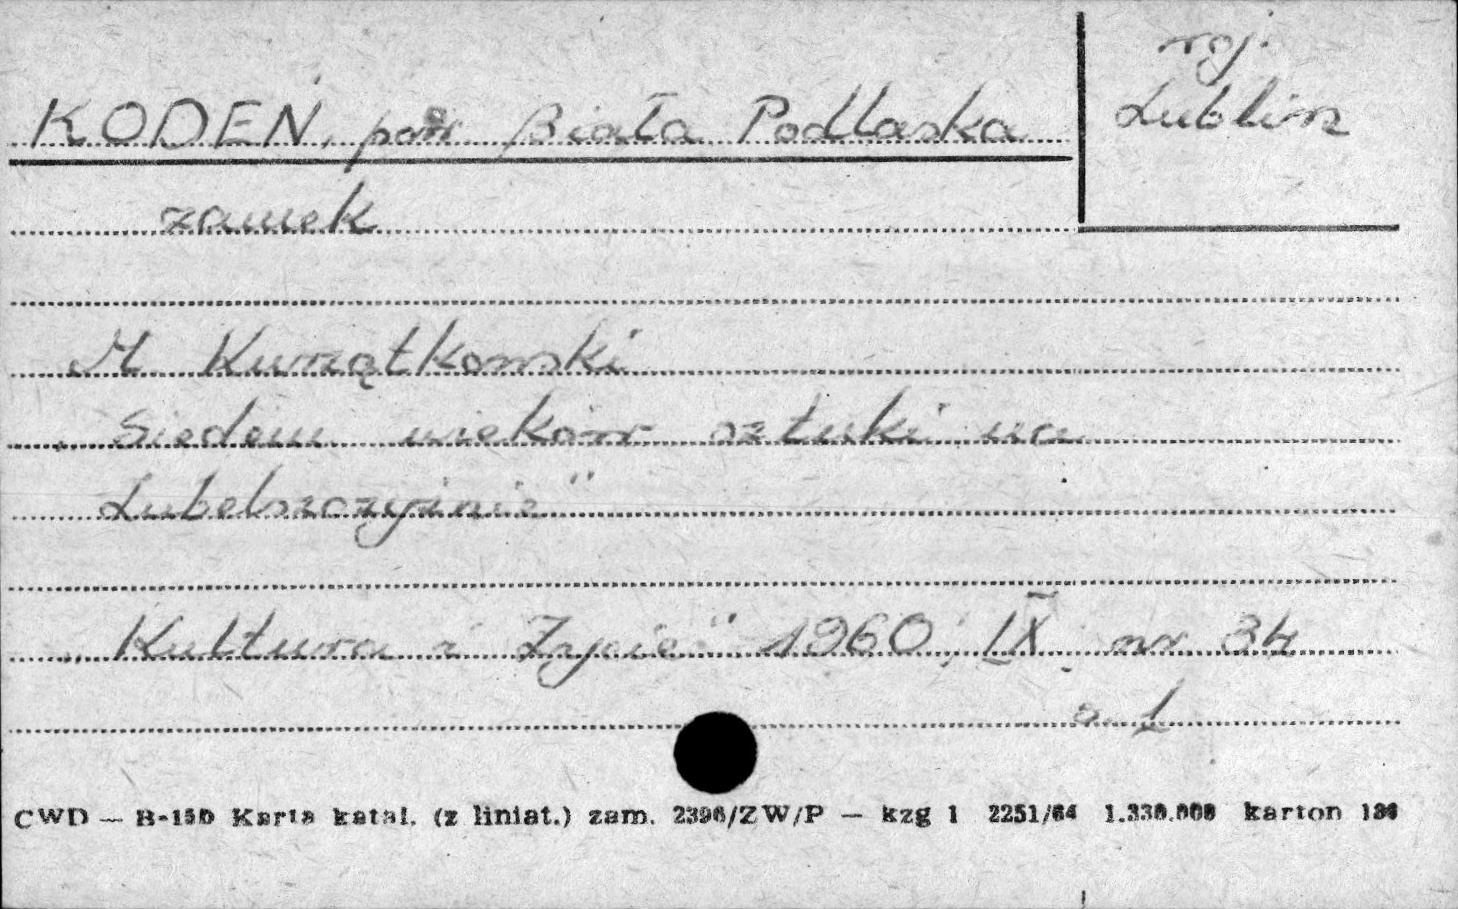 woj.
Lublin
KODEŃ, pow. Biała Podlaska
zamek
M. Kurzątkowski
„Siedem wieków sztuki na
Lubelszczyźnie"
„Kultura i Życie" 1960, IX, nr 34
s. 1
CWD — B-150 Karta katal. (z liniat.) zam. 2396/ZW/P — kzg 1 2251/64 1.330.000 karton